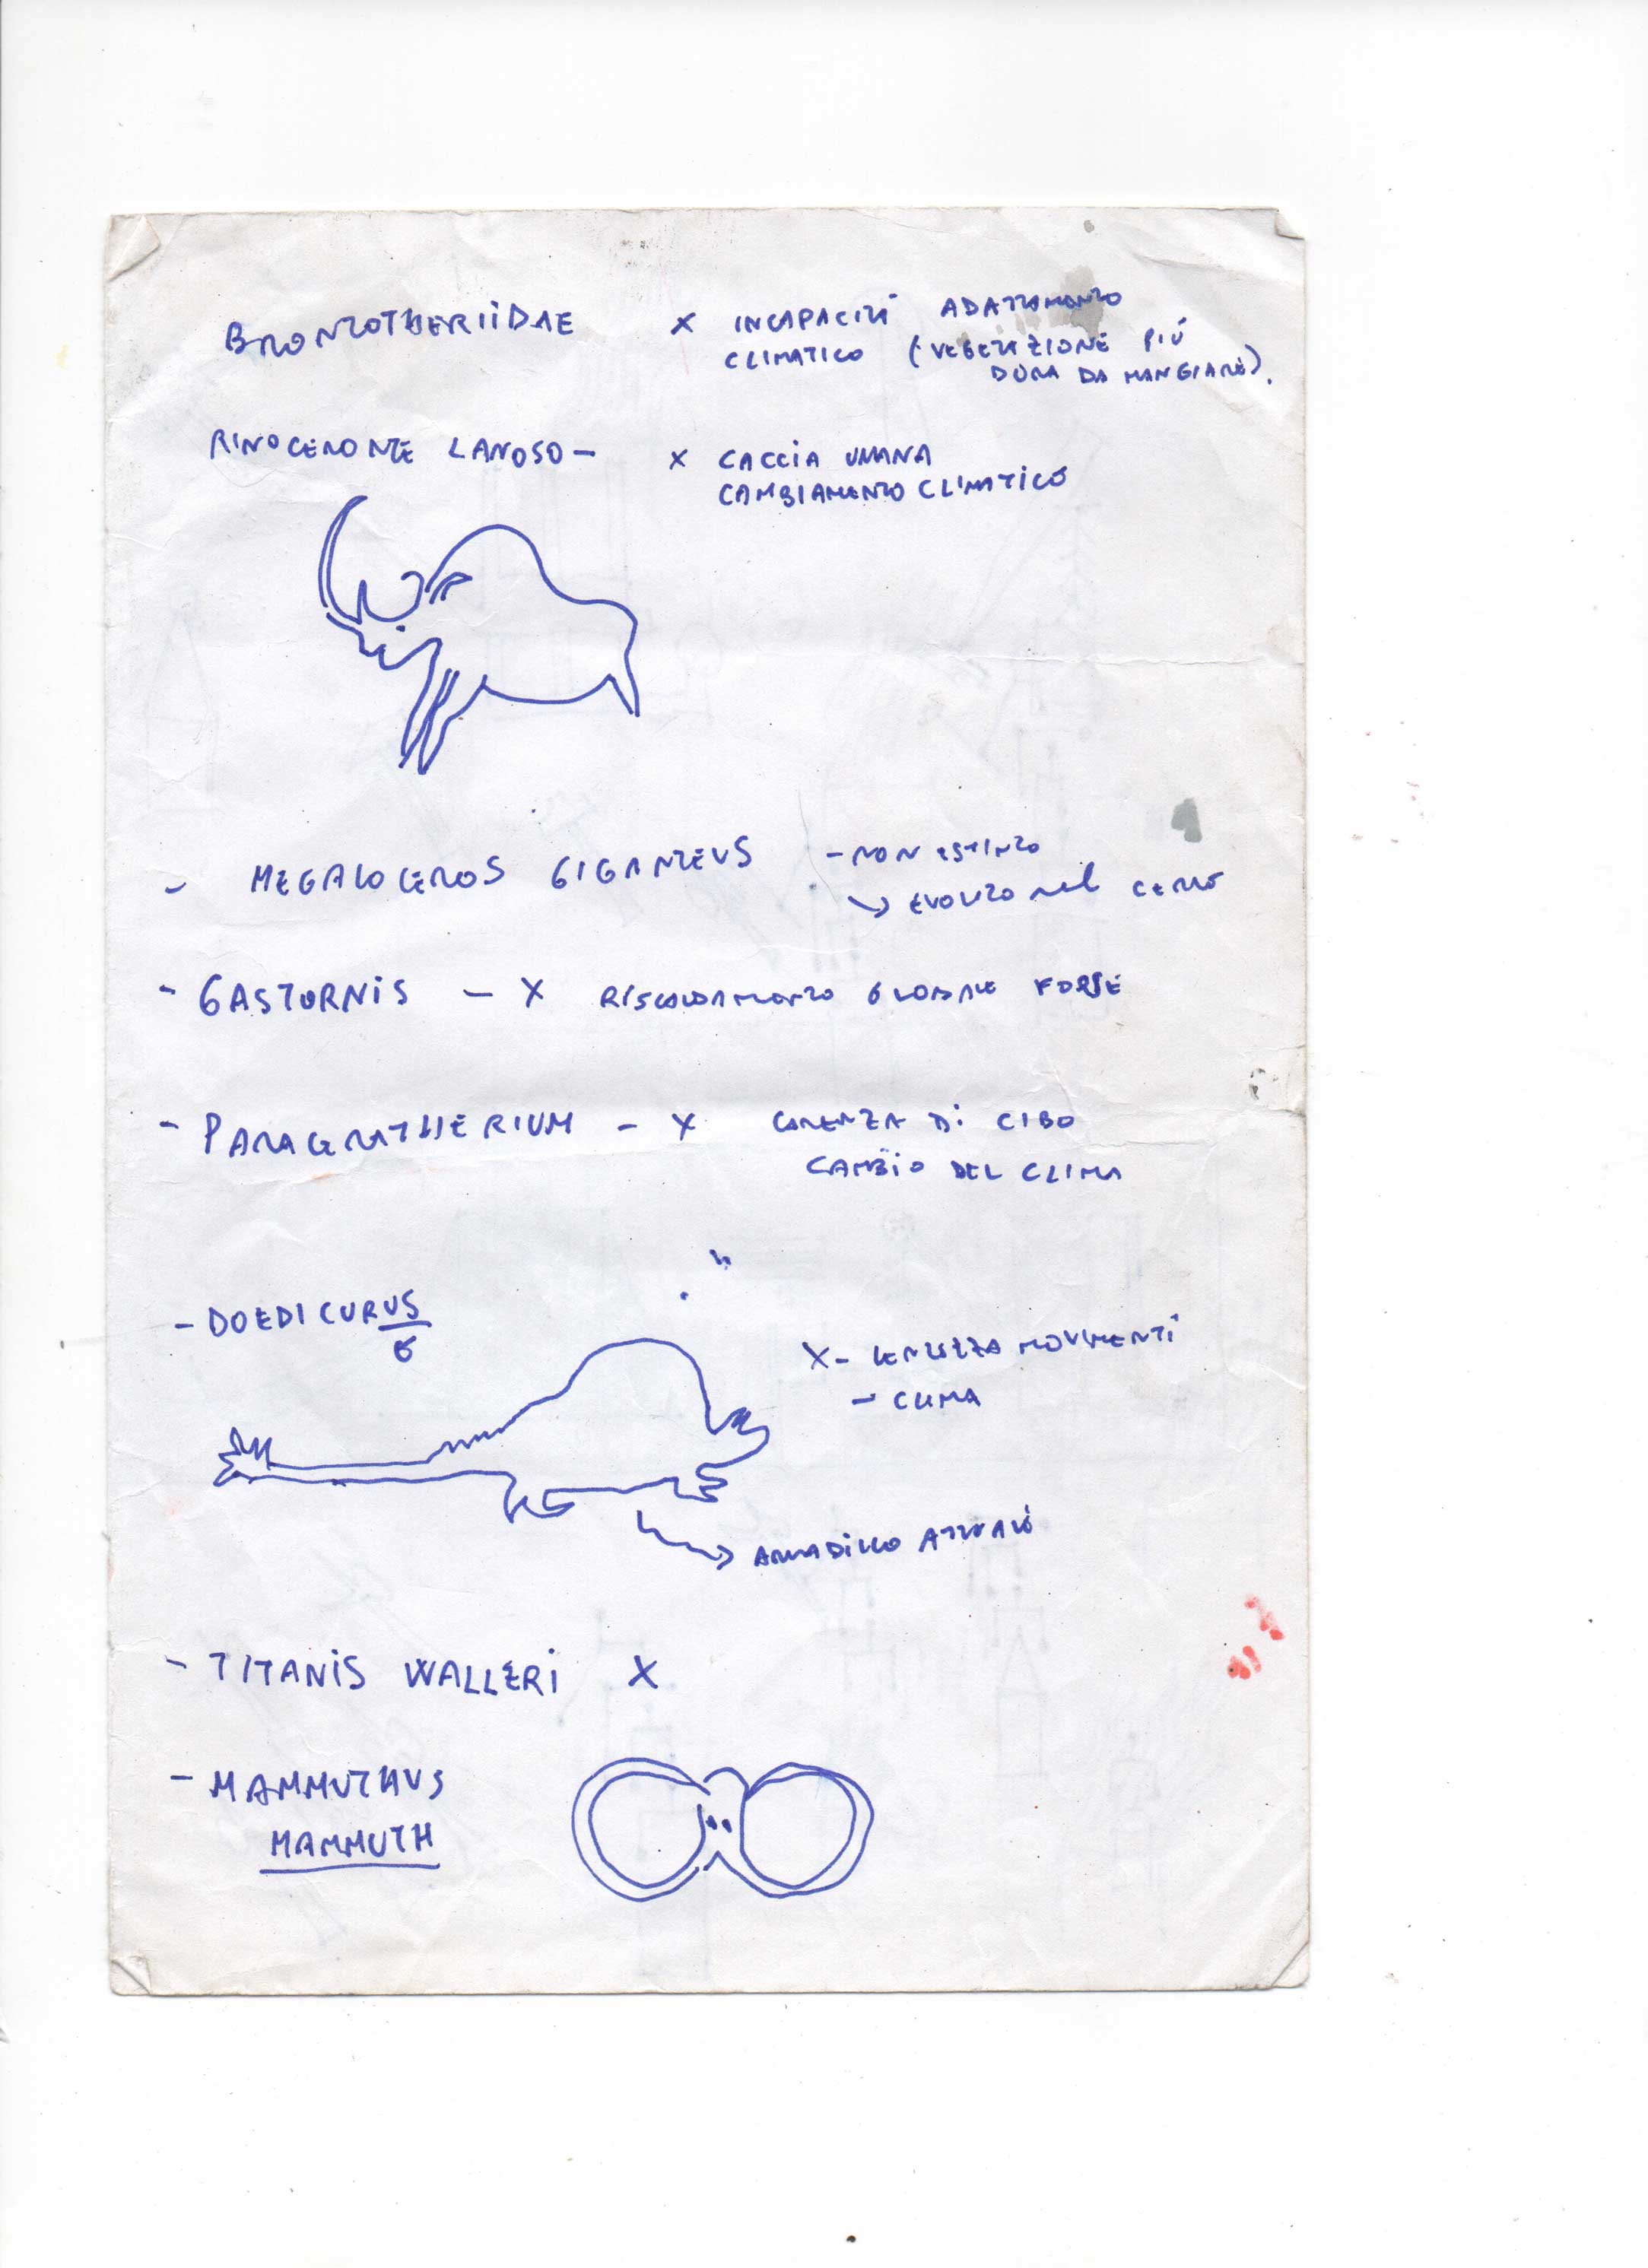 BRONTOTHERIIDAE × INCAPACITÀ ADATTAMENTO
CLIMATICO (VEGETAZIONE PIÚ
DURA DA MANGIARE).
RINOCERONTE LANOSO — × CACCIA UMANA
CAMBIAMENTO CLIMATICO
- MEGALOCEROS GIGANTEUS - NON ESTINTO
→ EVOLUTO nel CERVO
- GASTORNIS — X RISCALDAMENTO GLOBALE FORSE
- PARACRATHERIUM - X CARENZA DI CIBO
CAMBIO DEL CLIMA
- DOEDICURUS
X - LENTEZZA MOVIMENTI
- CLIMA
→ ARMADILLO ATTUALE
- TITANIS WALLERI X
- MAMMUTHUS
MAMMUTH